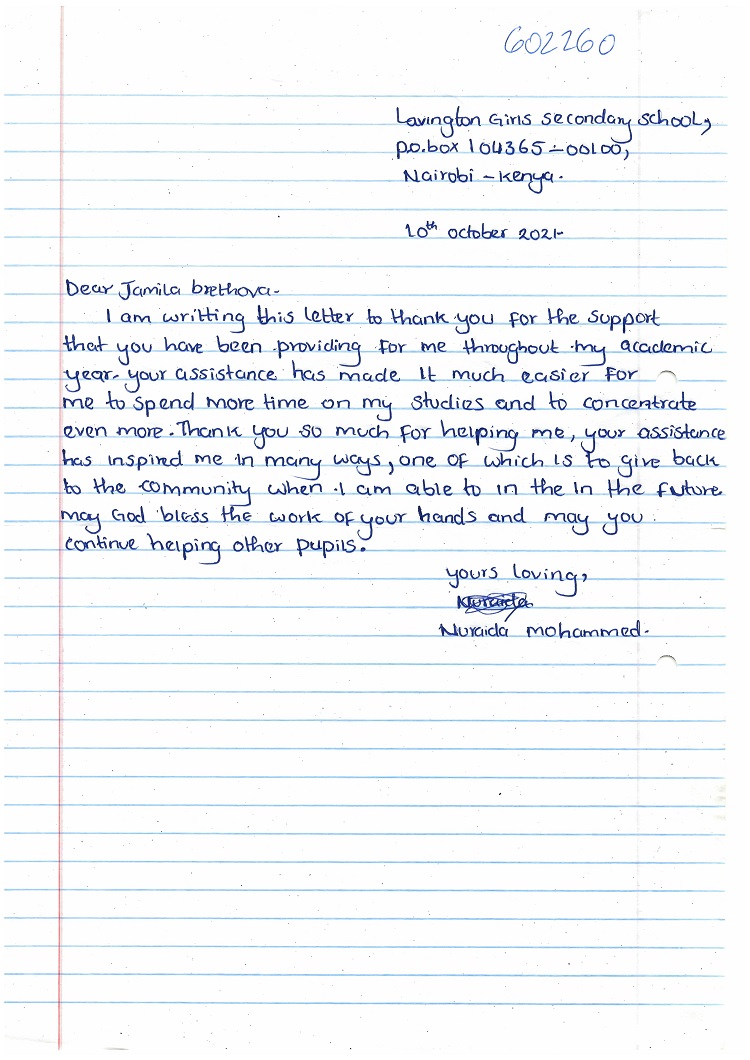 602260
Lavington Girls secondary school,
p.o.box 104365-00100,
Nairobi - Kenya.
10th october 2021-
Dear Jamila brethova-
I am writting this letter to thank you for the support
that you have been providing for me throughout my academic
year. your assistance has made it much easier for
me to spend more time on my studies and to concentrate
even more. Thank you so much for helping me, your assistance
has inspired me in many ways, one of which is to give back
to the community when I am able to in the in the future
may God bless the work of your hands and may you
continue helping other pupils.
yours loving,
Nuraida
Nuraida mohammed.